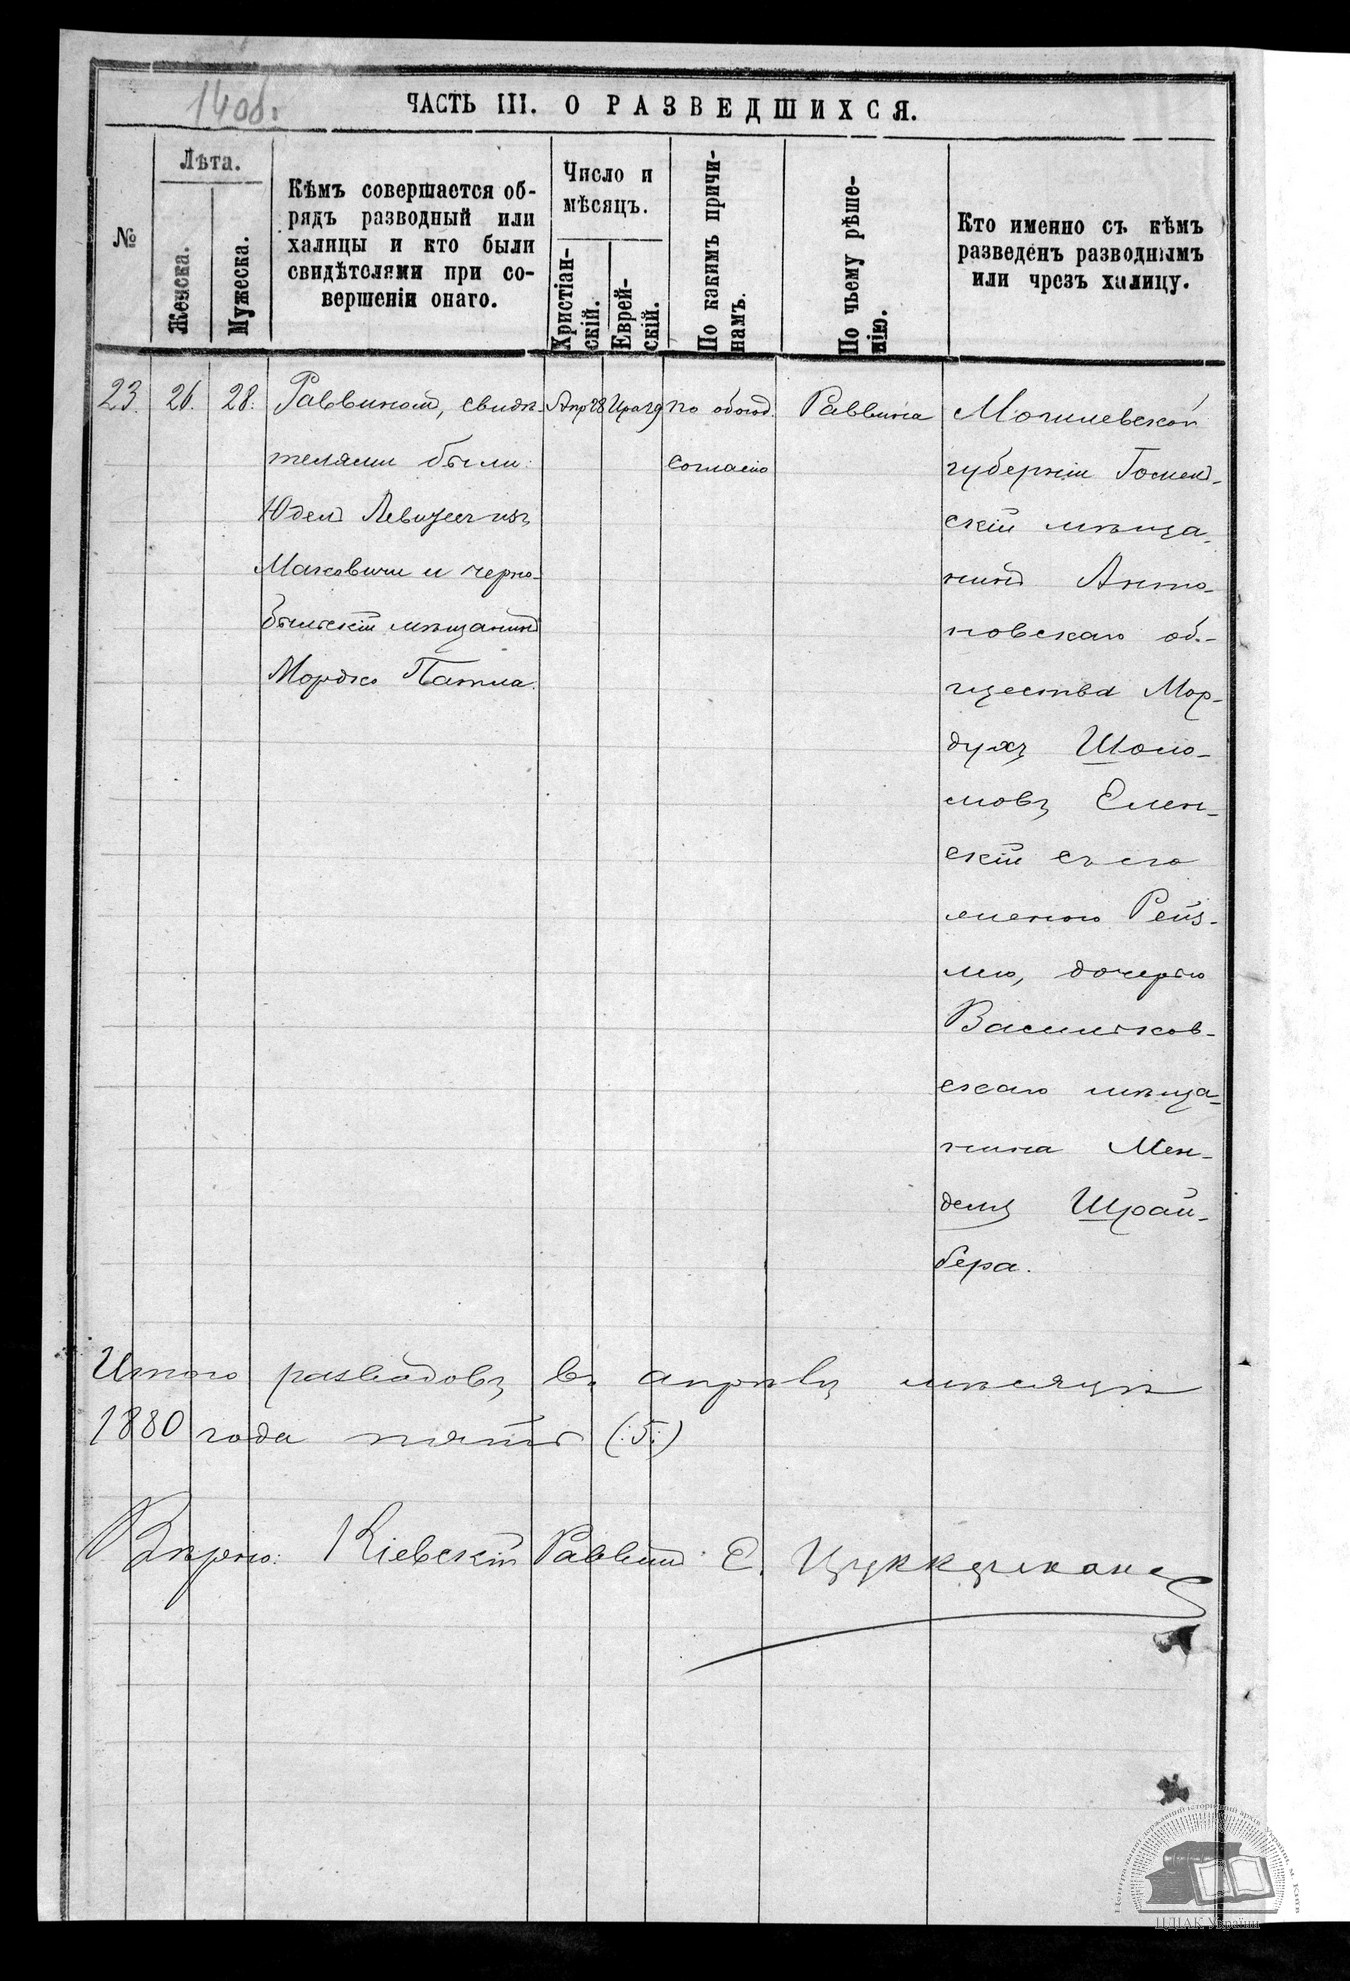 14об.
ЧАСТЬ III. О РАЗВЕДШИХСЯ.
№
Лѣта.
Женска.
Мужеска.
Кѣмъ совершается об-
рядъ разводный или
халицы и кто были
свидѣтелями при со-
вершеніи онаго.
Число и
мѣсяцъ.
Христіан-
скій.
Еврей-
скій.
По какимъ причи-
намъ.
По чьему рѣше-
нію.
Кто именно съ кѣмъ
разведенъ разводнымъ
или чрезъ халицу.
23. 26. 28.
Раввиномъ, свидѣ-
телями были:
Юдель
Маковичи и черно-
быльскій мѣщанинъ
Мордко Патла.
Апр 28
Ира 29
по обоюд.
согласію
Раввина
Могилевской
губерніи Гомель-
скій мѣща-
нинъ Анто-
новскаго об-
щества Мор-
духъ Шоло-
мовъ Елен-
скій съ его
женою Рейз-
лею, дочерью
Васильков-
скаго мѣща-
нина Мен-
деля Шрай-
бера.
Итого разводовъ въ апрѣлѣ мѣсяцѣ
1880 года пять (:5:)
Вѣрно: Кіевскій Раввинъ Е. Цуккерманъ
Центральний державний історичний архів України, м. Київ
ЦДІАК України